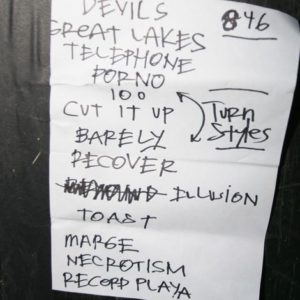 DEVILS
846
GREAT LAKES
TELEPHONE
PORNO
100
CUT IT UP
Turn
Styles
BARELY
RECOVER
ILLUSION
TOAST
MARGE
NECROTISM
RECORD PLAYA